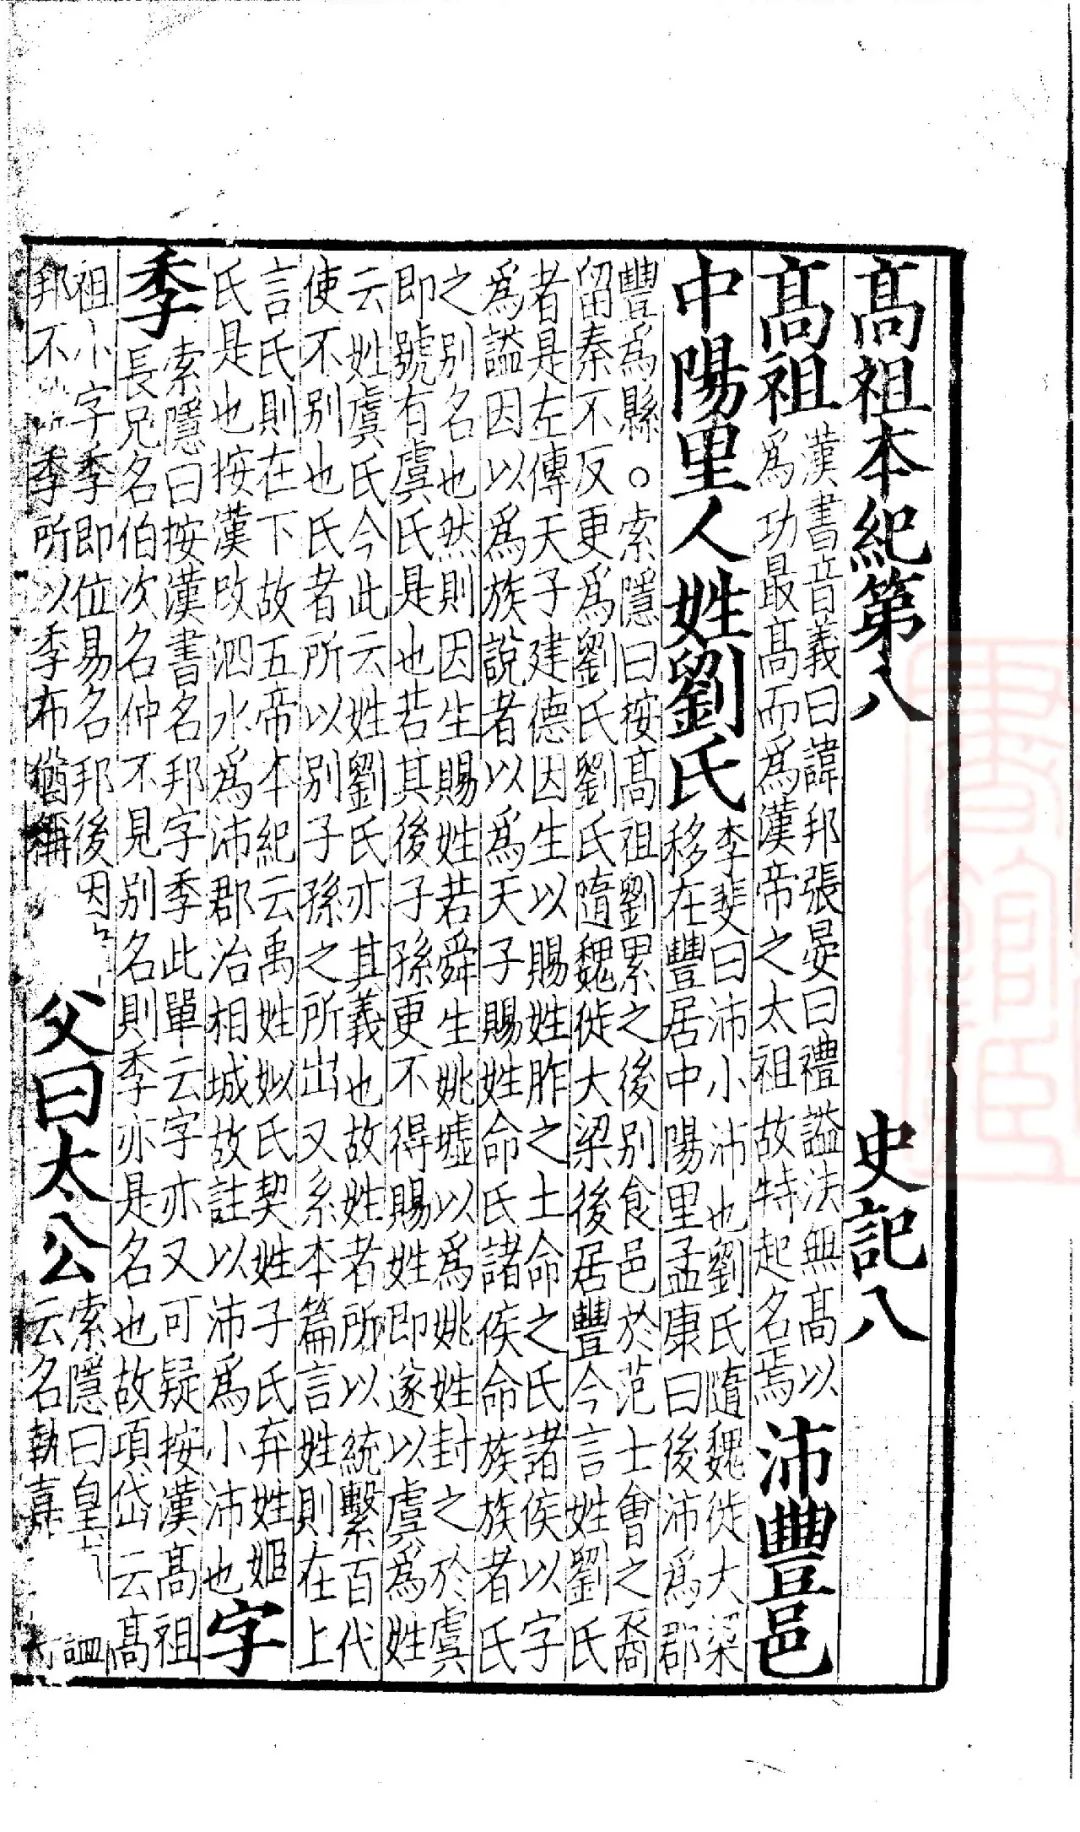 髙祖本紀第八　史記八
髙祖
漢書音義曰諱邦張晏曰禮謚法無髙以
爲功最髙而爲漢帝之太祖故特起名焉
沛豐邑
中陽里人姓劉氏
李斐曰沛小沛也劉氏隨魏徙大梁
移在豐居中陽里孟康曰後沛爲郡
豐爲縣○索隱曰按髙祖劉累之後別食邑於范士會之裔
留秦不反更爲劉氏劉氏隨魏徙大梁後居豐今言姓劉氏
者是左傳天子建德因生以賜姓胙之土命之氏諸侯以字
爲謚因以爲族說者以爲天子賜姓命氏諸侯命族族者氏
之別名也然則因生賜姓若舜生姚墟以爲姚姓封之於虞
即號有虞氏是也若其後子孫更不得賜姓即遂以虞爲姓
云姓虞氏今此云姓劉氏亦其義也故姓者所以統繫百代
使不別也氏者所以別子孫之所出又系本篇言姓則在上
言氏則在下故五帝本紀云禹姓姒氏契姓子氏弃姓姬
氏是也按漢改泗水爲沛郡治相城故註以沛爲小沛也
字
季
索隱曰按漢書名邦字季此單云字亦又可疑按漢髙祖
長兄名伯次名仲不見別名則季亦是名也故項岱云髙
祖小字季即位易名邦後因
邦不　季所以季布猶稱
父曰太公
索隱曰皇　謚
云名執嘉